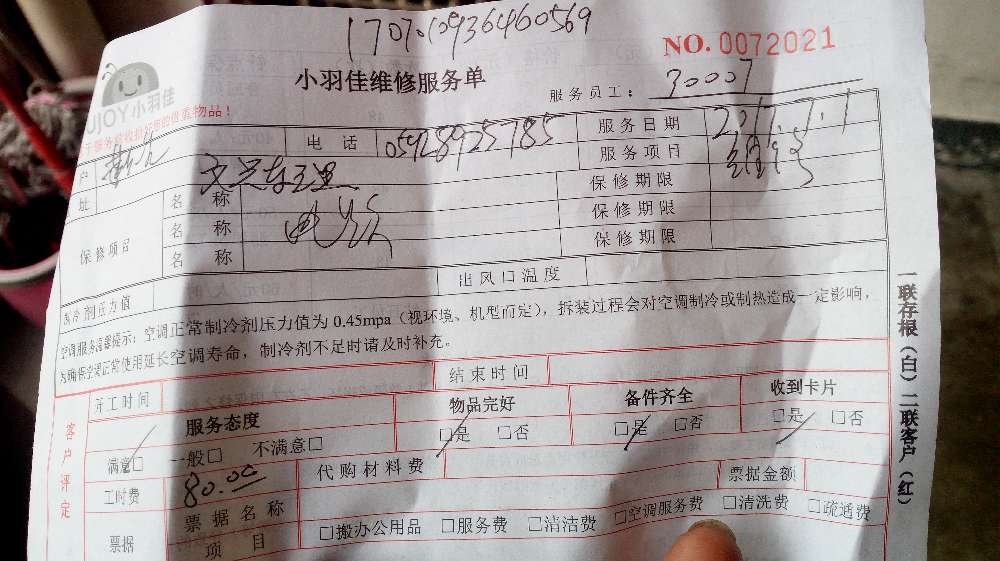 170701093646 0569
NO. 0072021
小羽佳维修服务单
服务员工： 30007
UJOY小羽佳
电 话 05928925785 服务日期
服务项目
户
址
名 称 保修期限
保修项目 名 称 保修期限
名 称 保修期限
制冷剂压力值 出风口温度
空调服务温馨提示：空调正常制冷剂压力值为 0.45mpa（视环境、机型而定），拆装过程会对空调制冷或制热造成一定影响，
为确保空调正常使用延长空调寿命，制冷剂不足时请及时补充。
开工时间 结束时间
客户评定
服务态度 物品完好 备件齐全 收到卡片
满意□ 一般□ 不满意□ □是 □否 □是 □否 □是 □否
工时费 80.00 代购材料费
票据 票据名称 票据金额
项 目 □搬办公用品 □服务费 □清洁费 □空调服务费 □清洗费 □疏通费
一联存根（白）二联客户（红）